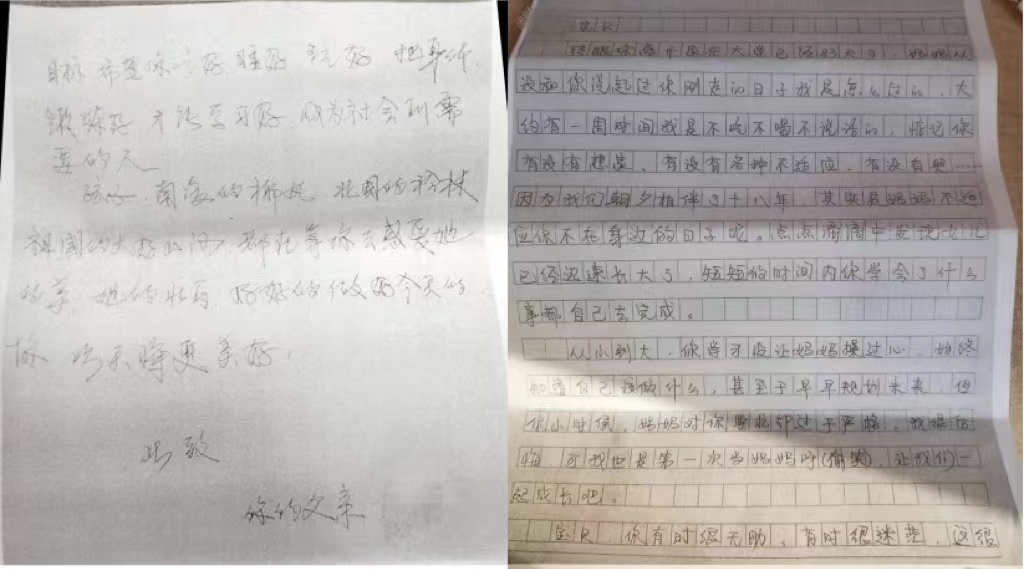 目标 希望你吃好 睡好 玩好 把身体
锻炼好 才能学习好 成为社会到需
要的人
孩子,南海的椰风,北国的松林
祖国的大好山河,都在等你去感受她
的美,她的壮丽,好好的做好今天的
你 明天将更美好.
此致
你的父亲
宝贝
你在大学已经的大了,妈妈从
没和你说起过你刚走的日子我是怎么过的,大
约有一周时间我是不吃不喝不说话的,惦记你
有没有想家,有没有各种不适应,有没有哭……
因为我们朝夕相伴了十八年,其实是妈妈不适
应你不在身边的日子呢。点点滴滴中发现你
已经迅速长大了,短短的时间内你学会了什么
事都自己去完成。
从小到大,你学习没让妈妈操过心,始终
知道自己该做什么,甚至于早早规划未来,但
你小时候,妈妈对你要求却过于严格,我很后
悔,可我也是第一次当妈妈呀(偷笑),让我们一
起成长吧。
宝贝 你有时很无助,有时很迷茫,这很